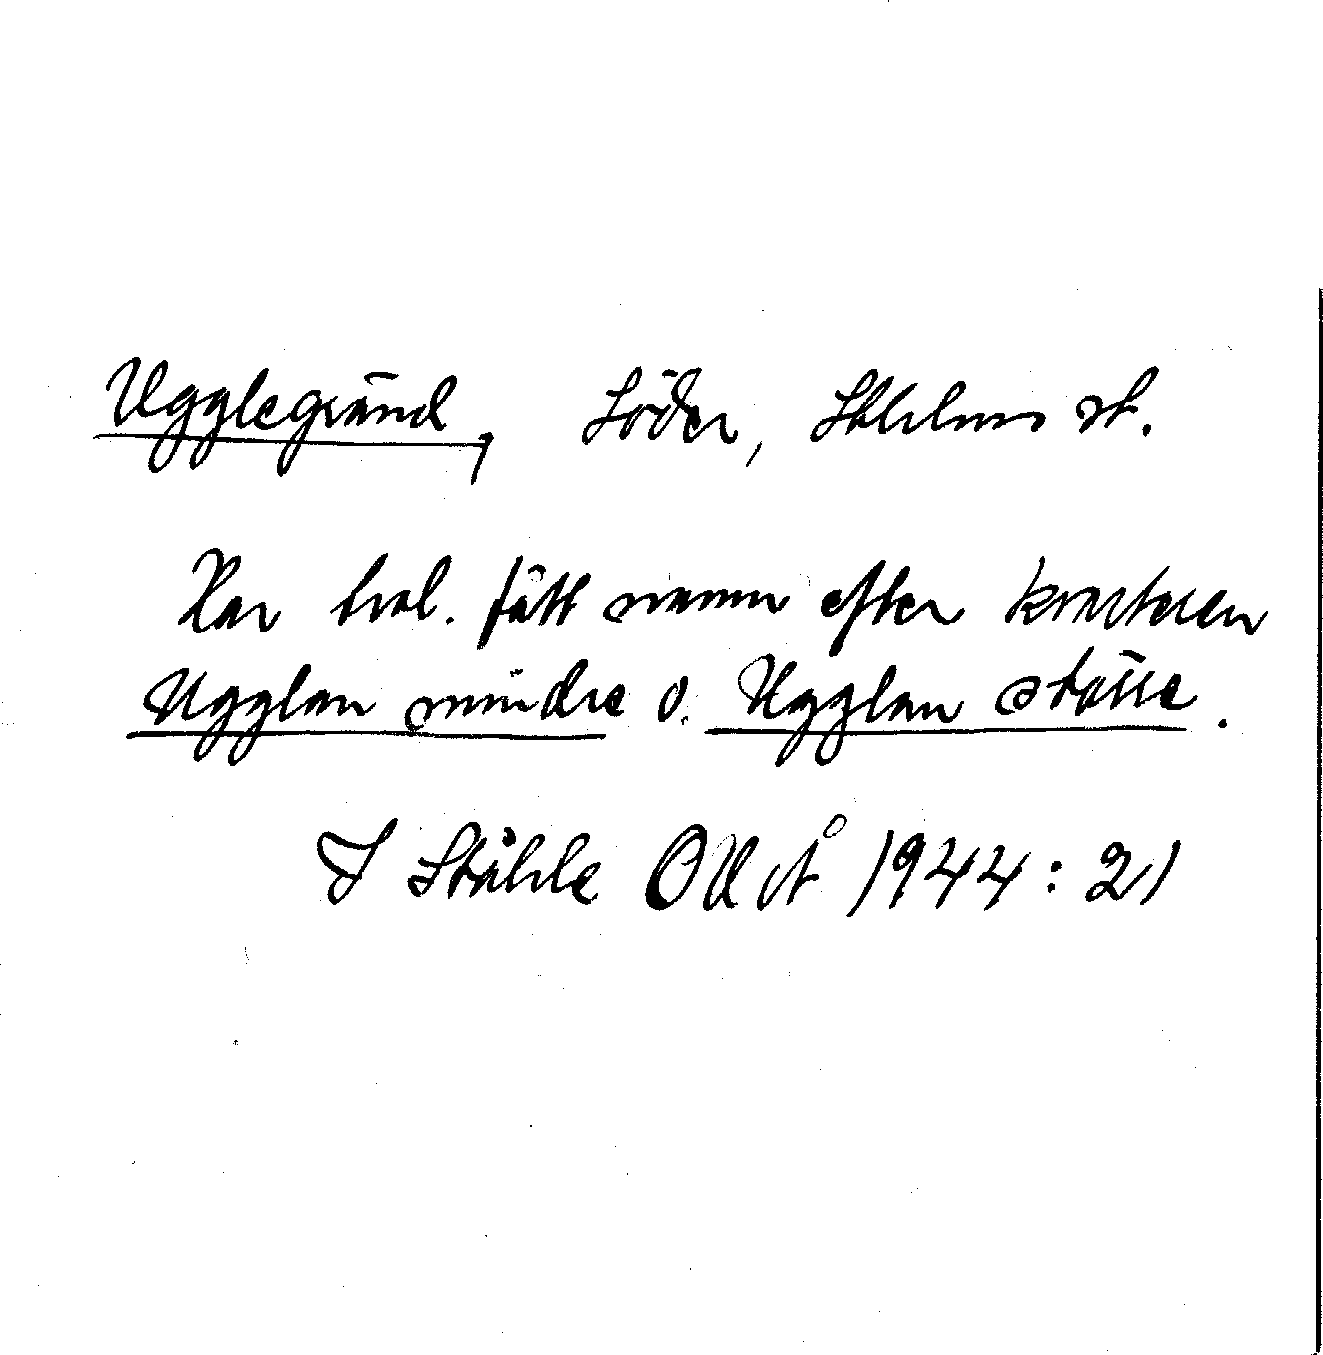 Ugglegränd, Söder, Sthlms st.
Har trol. fått namn efter kvarteren
Ugglan mindre o. Ugglan större.
I Ståhle OUÅ 1944: 21